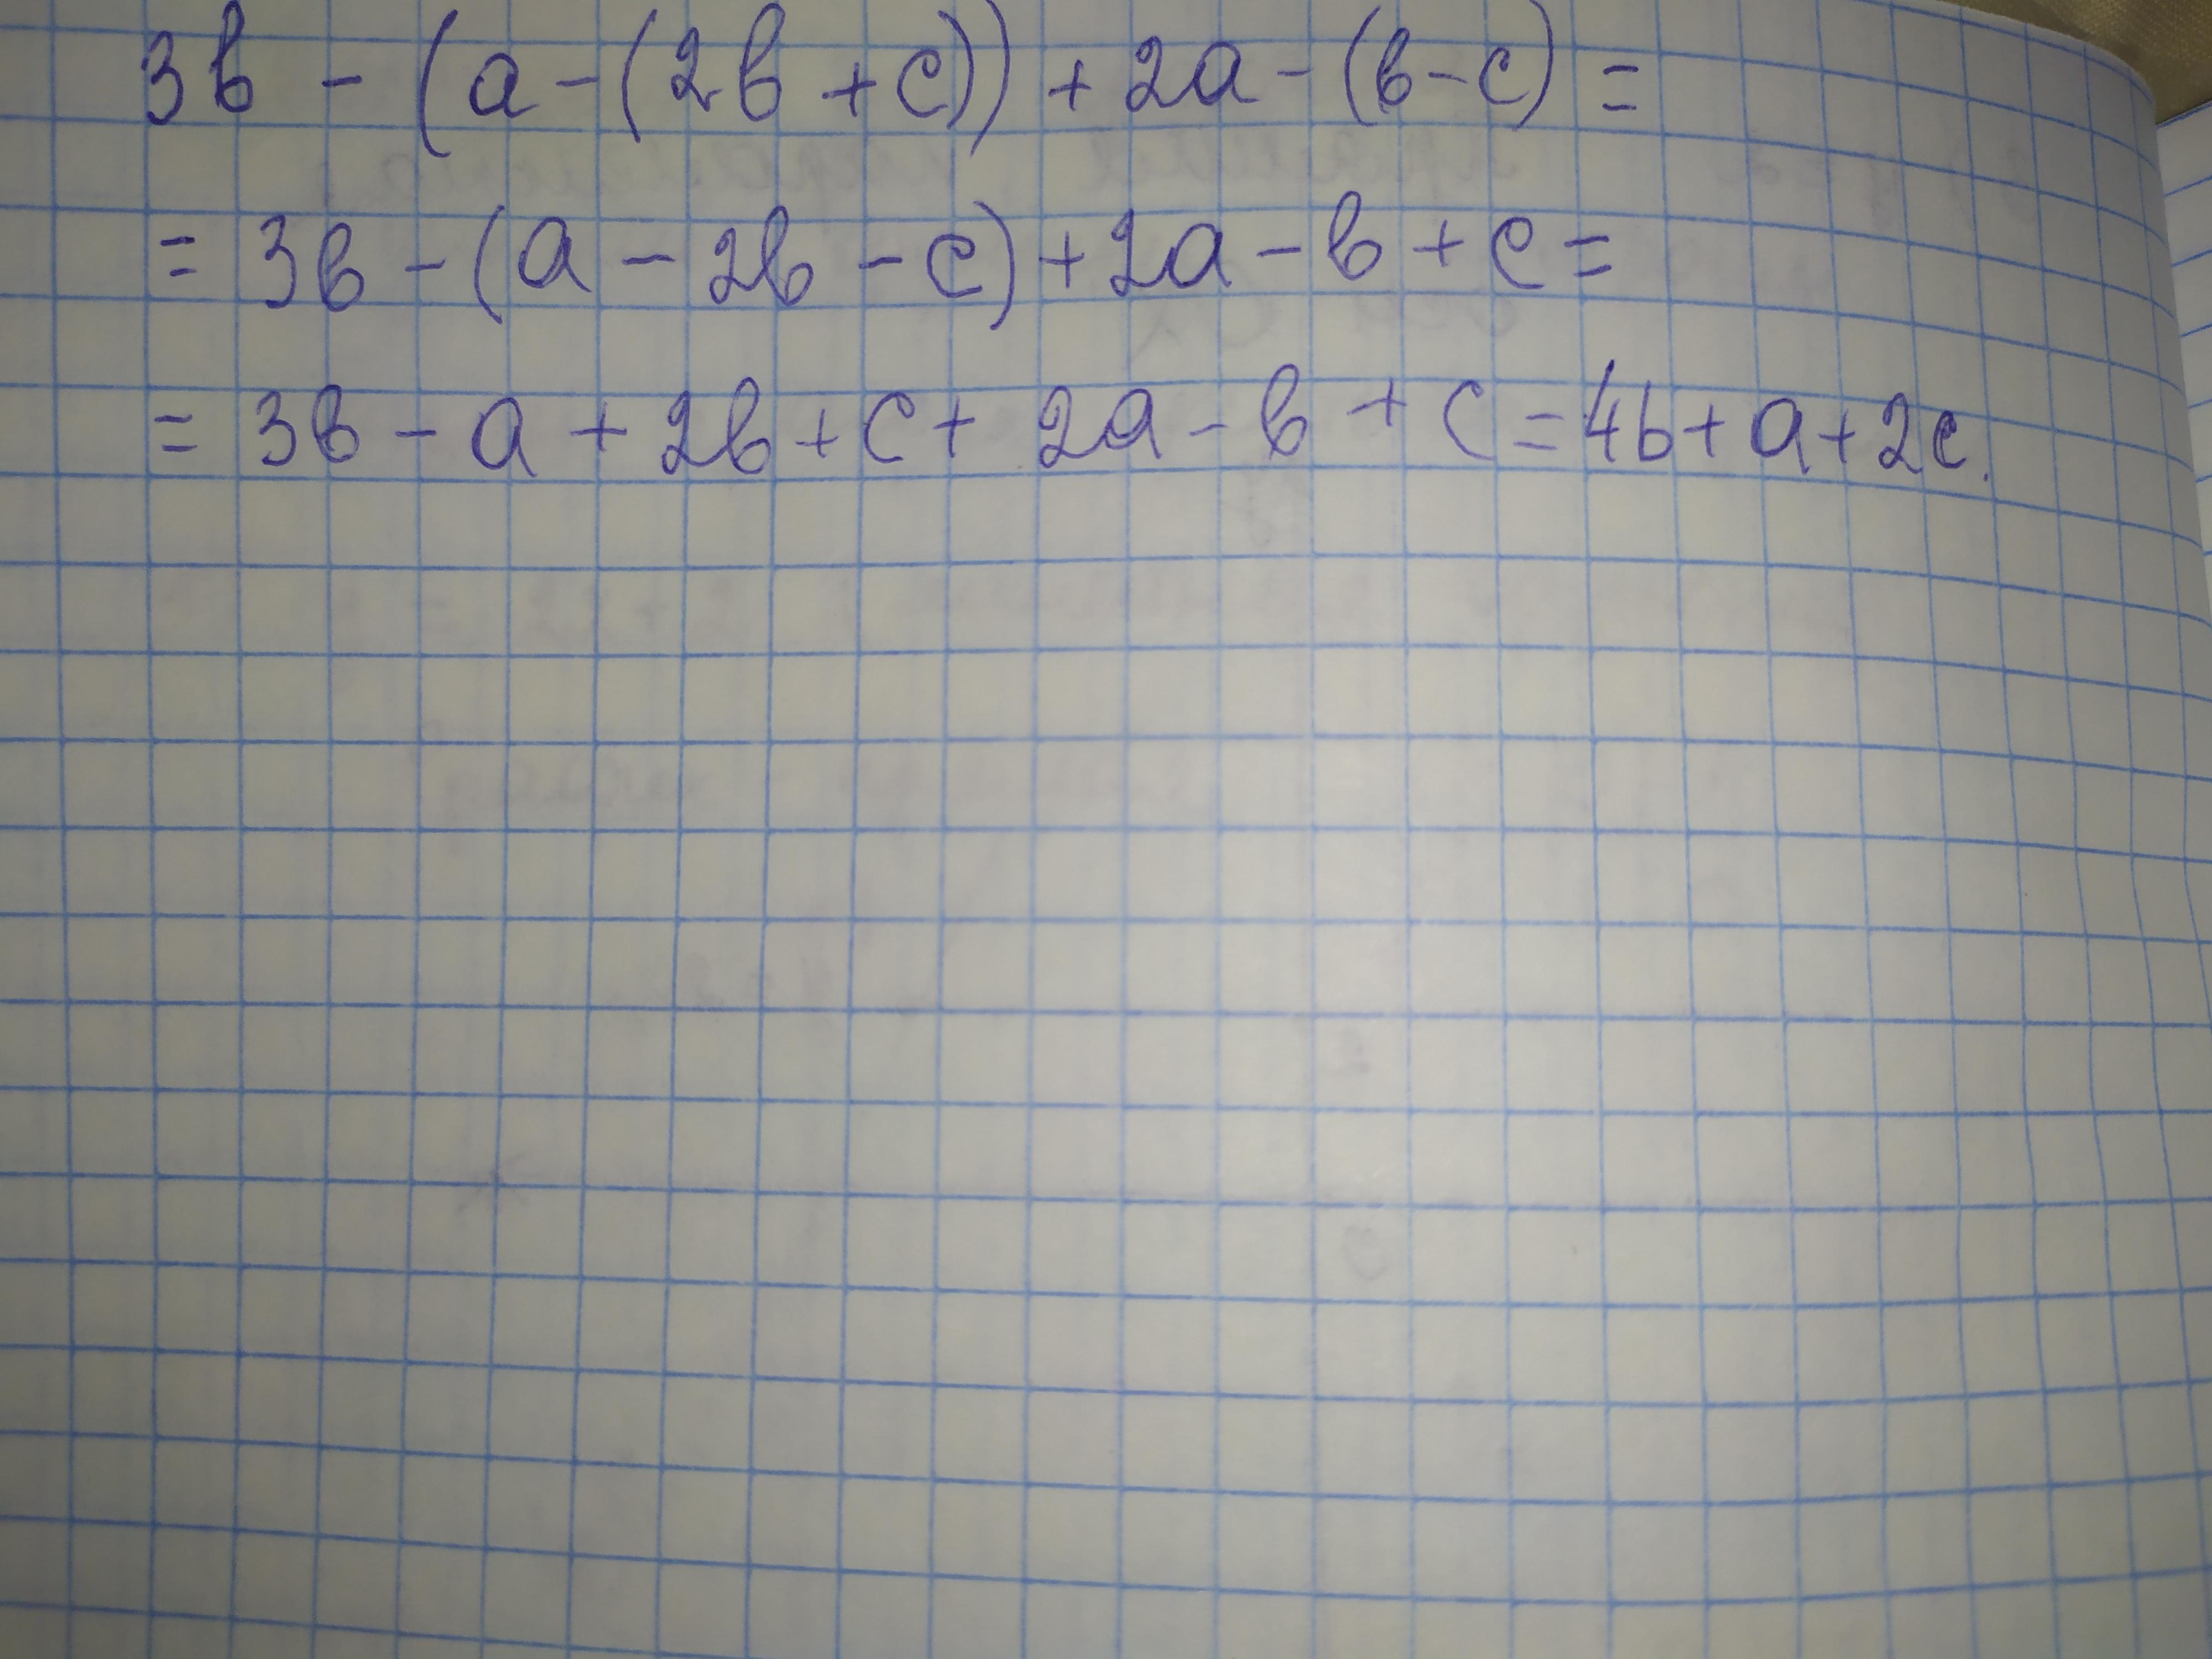 3b - (a - (2b + c)) + 2a - (b - c) =
= 3b - (a - 2b - c) + 2a - b + c =
= 3b - a + 2b + c + 2a - b + c = 4b + a + 2c.